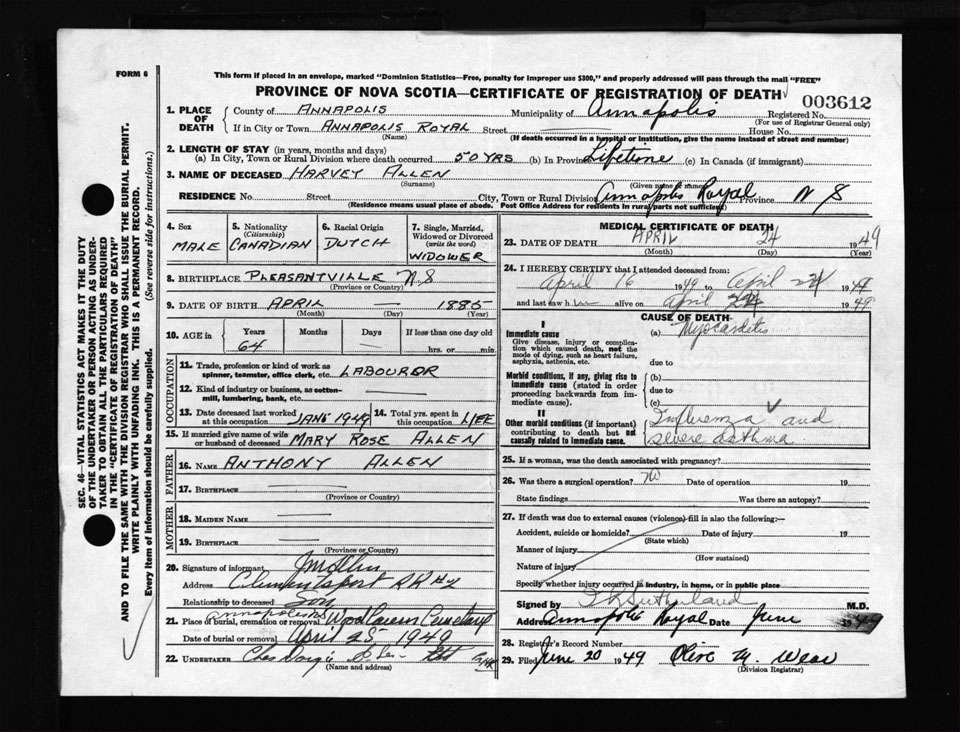 FORM 6
This form if placed in an envelope, marked "Dominion Statistics—Free, penalty for improper use $300," and properly addressed will pass through the mail "FREE"
PROVINCE OF NOVA SCOTIA—CERTIFICATE OF REGISTRATION OF DEATH
003612
1. PLACE OF DEATH
County of ANNAPOLIS Municipality of Annapolis Registered No.
(For use of Registrar General only)
If in City or Town ANNAPOLIS ROYAL Street — House No.
(Name) (If death occurred in a hospital or institution, give its name instead of street and number)
2. LENGTH OF STAY (in years, months and days)
(a) In City, Town or Rural Division where death occurred 50 YRS (b) In Province Lifetime (c) In Canada (if immigrant)
3. NAME OF DECEASED HARVEY ALLEN
(Surname) (Given name or names)
RESIDENCE No. Street City, Town or Rural Division Annapolis Royal Province N S
(Residence means usual place of abode. Post Office Address for residents in rural parts not sufficient)
4. Sex
MALE
5. Nationality (Citizenship)
CANADIAN
6. Racial Origin
DUTCH
7. Single, Married, Widowed or Divorced (write the word)
WIDOWER
8. BIRTHPLACE PLEASANTVILLE N.S
(Province or Country)
9. DATE OF BIRTH APRIL — 1885
(Month) (Day) (Year)
10. AGE in Years Months Days If less than one day old
64 — — hrs. or min.
OCCUPATION
11. Trade, profession or kind of work as spinner, teamster, office clerk, etc. LABOURER
12. Kind of industry or business, as cotton-mill, lumbering, bank, etc.
13. Date deceased last worked at this occupation JAN 1949
14. Total yrs. spent in this occupation LIFE
15. If married give name of wife or husband of deceased MARY ROSE ALLEN
FATHER
16. Name ANTHONY ALLEN
17. Birthplace — —
(Province or Country)
MOTHER
18. Maiden Name —
19. Birthplace —
(Province or Country)
20. Signature of informant
Address Clementsport
Relationship to deceased Son
21. Place of burial, cremation or removal Annapolis Cemetery
Date of burial or removal April 25 1949
22. UNDERTAKER Chas
(Name and address)
MEDICAL CERTIFICATE OF DEATH
23. DATE OF DEATH APRIL 24 1949
(Month) (Day) (Year)
24. I HEREBY CERTIFY that I attended deceased from:
April 16 1949 to April 24 1949
and last saw him alive on April 24 1949
CAUSE OF DEATH
I
Immediate cause (a) Myocarditis
Give disease, injury or complication which caused death, not the mode of dying, such as heart failure, asphyxia, asthenia, etc.
due to
Morbid conditions, if any, giving rise to immediate cause (stated in order proceeding backwards from immediate cause).
(b)
due to
(c)
II
Other morbid conditions (if important) contributing to death but not causally related to immediate cause.
Influenza and
severe asthma
25. If a woman, was the death associated with pregnancy?
26. Was there a surgical operation? No Date of operation 19
State findings Was there an autopsy?
27. If death was due to external causes (violence) fill in also the following:—
Accident, suicide or homicide? Date of injury 19
(State which)
Manner of injury
(How sustained)
Nature of injury
Specify whether injury occurred in industry, in home, or in public place
Signed by Sutherland M.D.
Address Annapolis Royal Date June 1949
28. Registrar's Record Number
29. Filed June 20 1949 Olive M. Wear
(Division Registrar)
SEC. 46—VITAL STATISTICS ACT MAKES IT THE DUTY
OF THE UNDERTAKER OR PERSON ACTING AS UNDER-
TAKER TO OBTAIN ALL THE PARTICULARS REQUIRED
IN THE "CERTIFICATE OF REGISTRATION OF DEATH"
AND TO FILE THE SAME WITH THE DIVISION REGISTRAR WHO SHALL ISSUE THE BURIAL PERMIT.
WRITE PLAINLY WITH UNFADING INK. THIS IS A PERMANENT RECORD.
Every item of information should be carefully supplied. (See reverse side for instructions.)